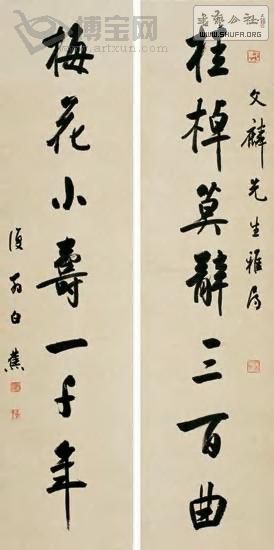 桂棹莫辭三百曲
文麟先生雅屬
梅花小壽一千年
復翁白蕉
博宝网
www.artxun.com
WWW.SHUFA.ORG